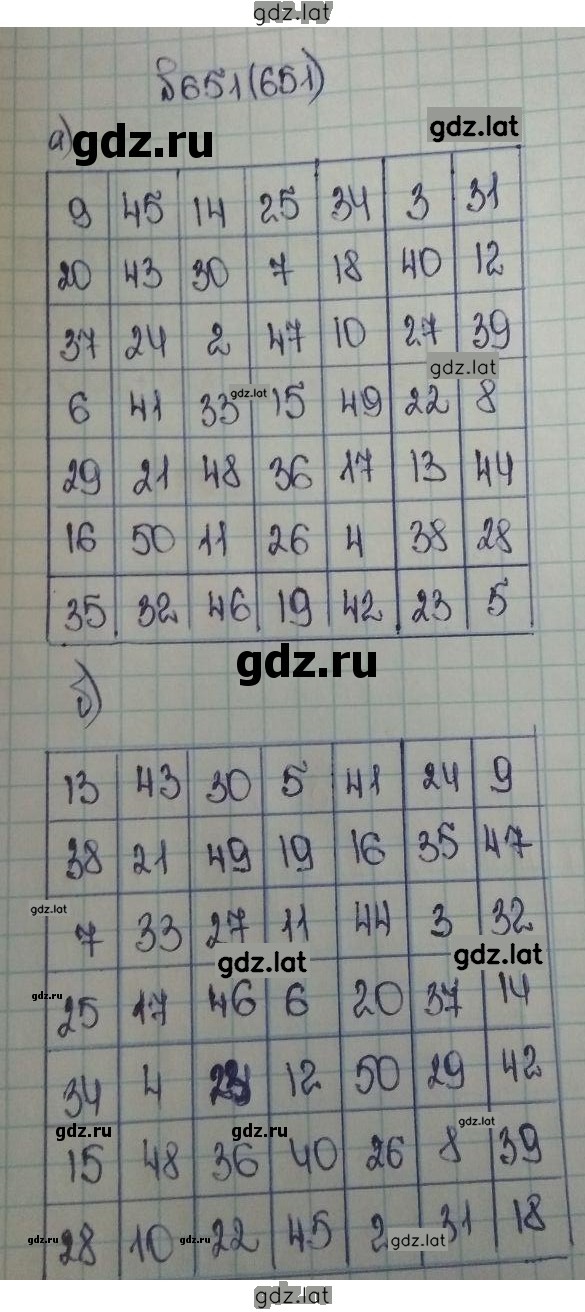 gdz.lat
№651(651)
gdz.lat
а)
gdz.ru
9 45 14 25 34 3 31
20 43 30 7 18 40 12
37 24 2 47 10 27 39
gdz.lat
gdz.lat
6 41 33 15 49 22 8
29 21 48 36 17 13 44
16 50 11 26 4 38 28
35 32 46 19 42 23 5
gdz.ru
б)
13 43 30 5 41 24 9
38 21 49 19 16 35 47
gdz.lat
7 33 27 11 44 3 32
gdz.lat
gdz.lat
gdz.ru
25 17 46 6 20 37 14
34 4 23 12 50 29 42
gdz.ru
gdz.ru
gdz.lat
15 48 36 40 26 8 39
28 10 22 45 2 31 18
gdz.ru
gdz.ru
gdz.lat
gdz.lat